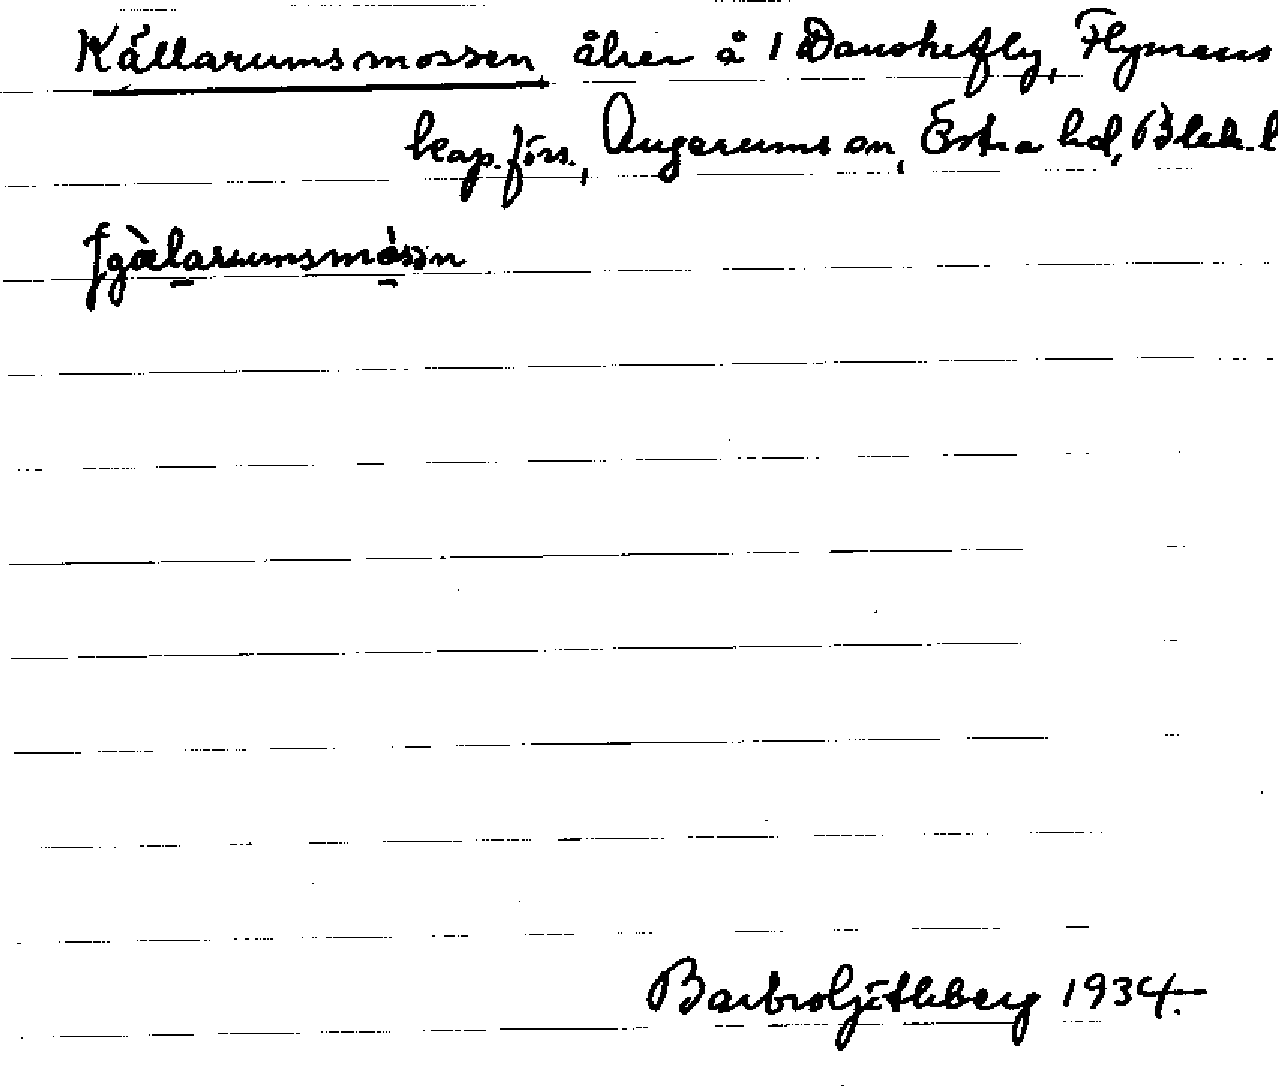 Källarumsmossen åker å 1 Danskefly, Flymens
kap.förs., Augerums sn, Östra hd, Blek. l
ʃɡàlarumsmósən
Barbro Götheberg 1934.